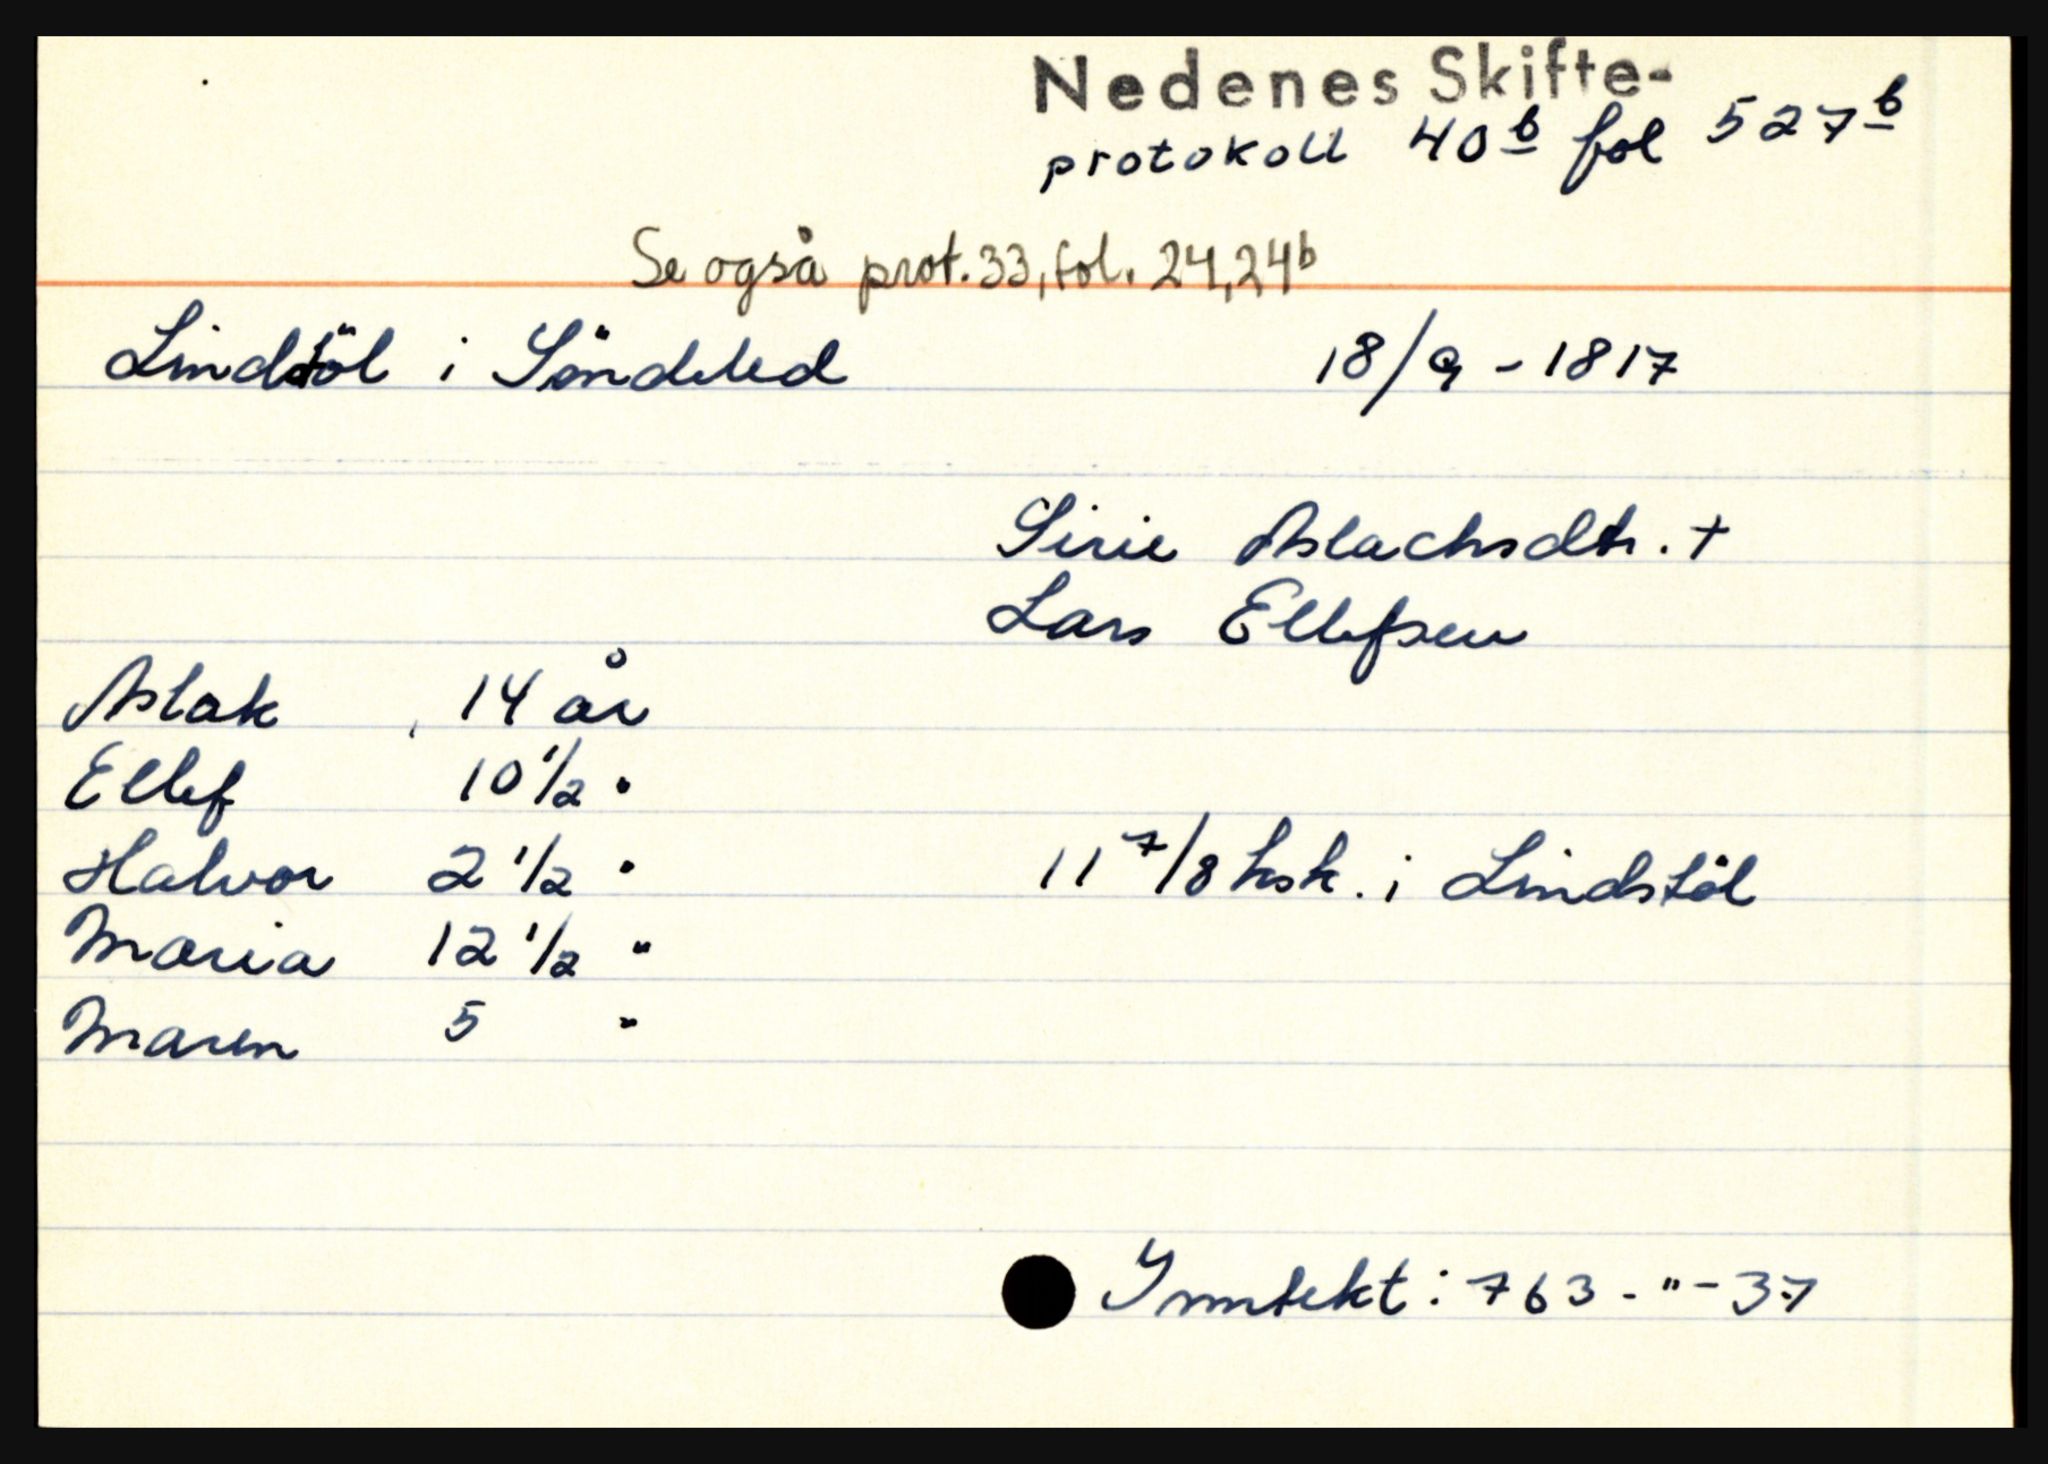 Nedenes Skifte-
protokoll 40b fol 527b
Se også prot. 33, fol. 24, 24b
Lindstöl i Söndeled 18/9 - 1817
Sirie Aslachsdtr. +
Lars Ellefsen
Aslak 14 år
Ellef 10 1/2 "
Halvor 2 1/2 " 11 7/8 ksk. i Lindstöl
Maria 12 1/2 "
Maren 5 "
Inntekt: 763 - " - 37